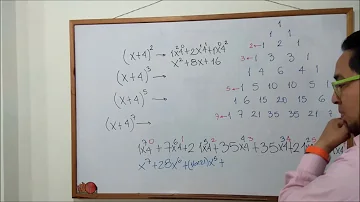 (x+4)² → 1x²4⁰+2x¹4¹+1x⁰4²
x²+8x+16
(x+4)³ →
(x+4)⁵ →
(x+4)⁷ →
1
1 1
2← 1 2 1
3← 1 3 3 1
1 4 6 4 1
5← 1 5 10 10 5 1
1 6 15 20 15 6
7← 1 7 21 35 35 21 7
1x⁷4⁰+7x⁶4¹+21x⁵4²+35x⁴4³+35x³4⁴+21x²4⁵
x⁷+28x⁶+ x⁵+